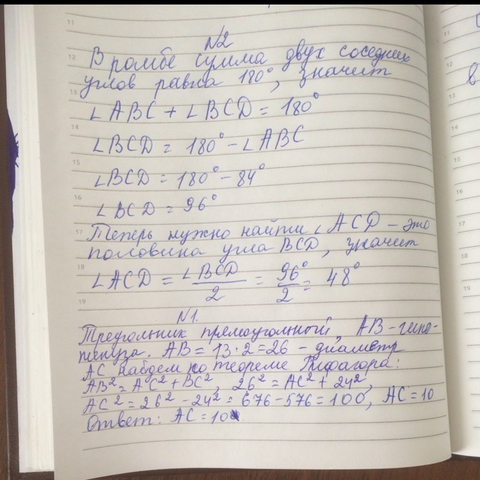 N2
В ромбе сумма двух соседних
углов равна 180°, значит
∠ABC + ∠BCD = 180°
∠BCD = 180° - ∠ABC
∠BCD = 180° - 84°
∠BCD = 96°
Теперь нужно найти ∠ACD - это
половина угла BCD, значит
∠ACD = ∠BCD/2 = 96°/2 = 48°
N1.
Треугольник прямоугольный, AB - гипо-
тенуза. AB = 13·2 = 26 - диаметр
AC найдем по теореме Пифагора:
AB² = AC² + BC², 26² = AC² + 24²,
AC² = 26² - 24² = 676 - 576 = 100, AC = 10
Ответ: AC = 10
11
12
13
14
15
16
17
18
19
в